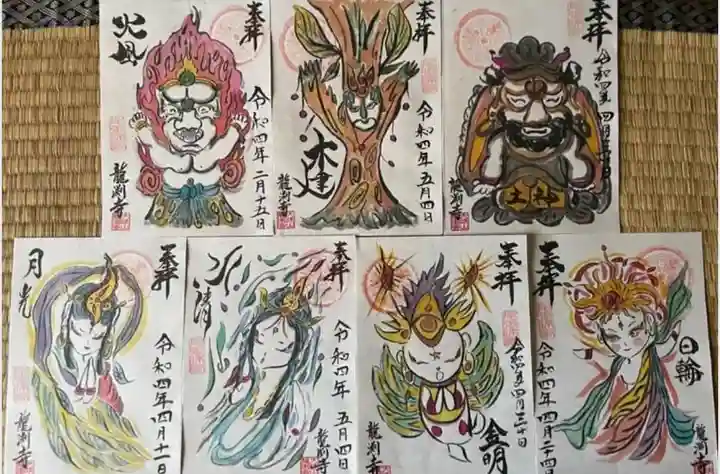 奉拝
火風
令和四年 二月十五日
龍渕寺
奉拝
木建
令和四年 五月四日
龍渕寺
奉拝
令和四年 四月三十日
土
龍渕寺
奉拝
月光
令和四年 四月十一日
龍渕寺
奉拝
清
令和四年 五月四日
龍渕寺
奉拝
令和四年 四月三十日
金明
龍渕寺
奉拝
日輪
令和四年 四月十一日
龍渕寺